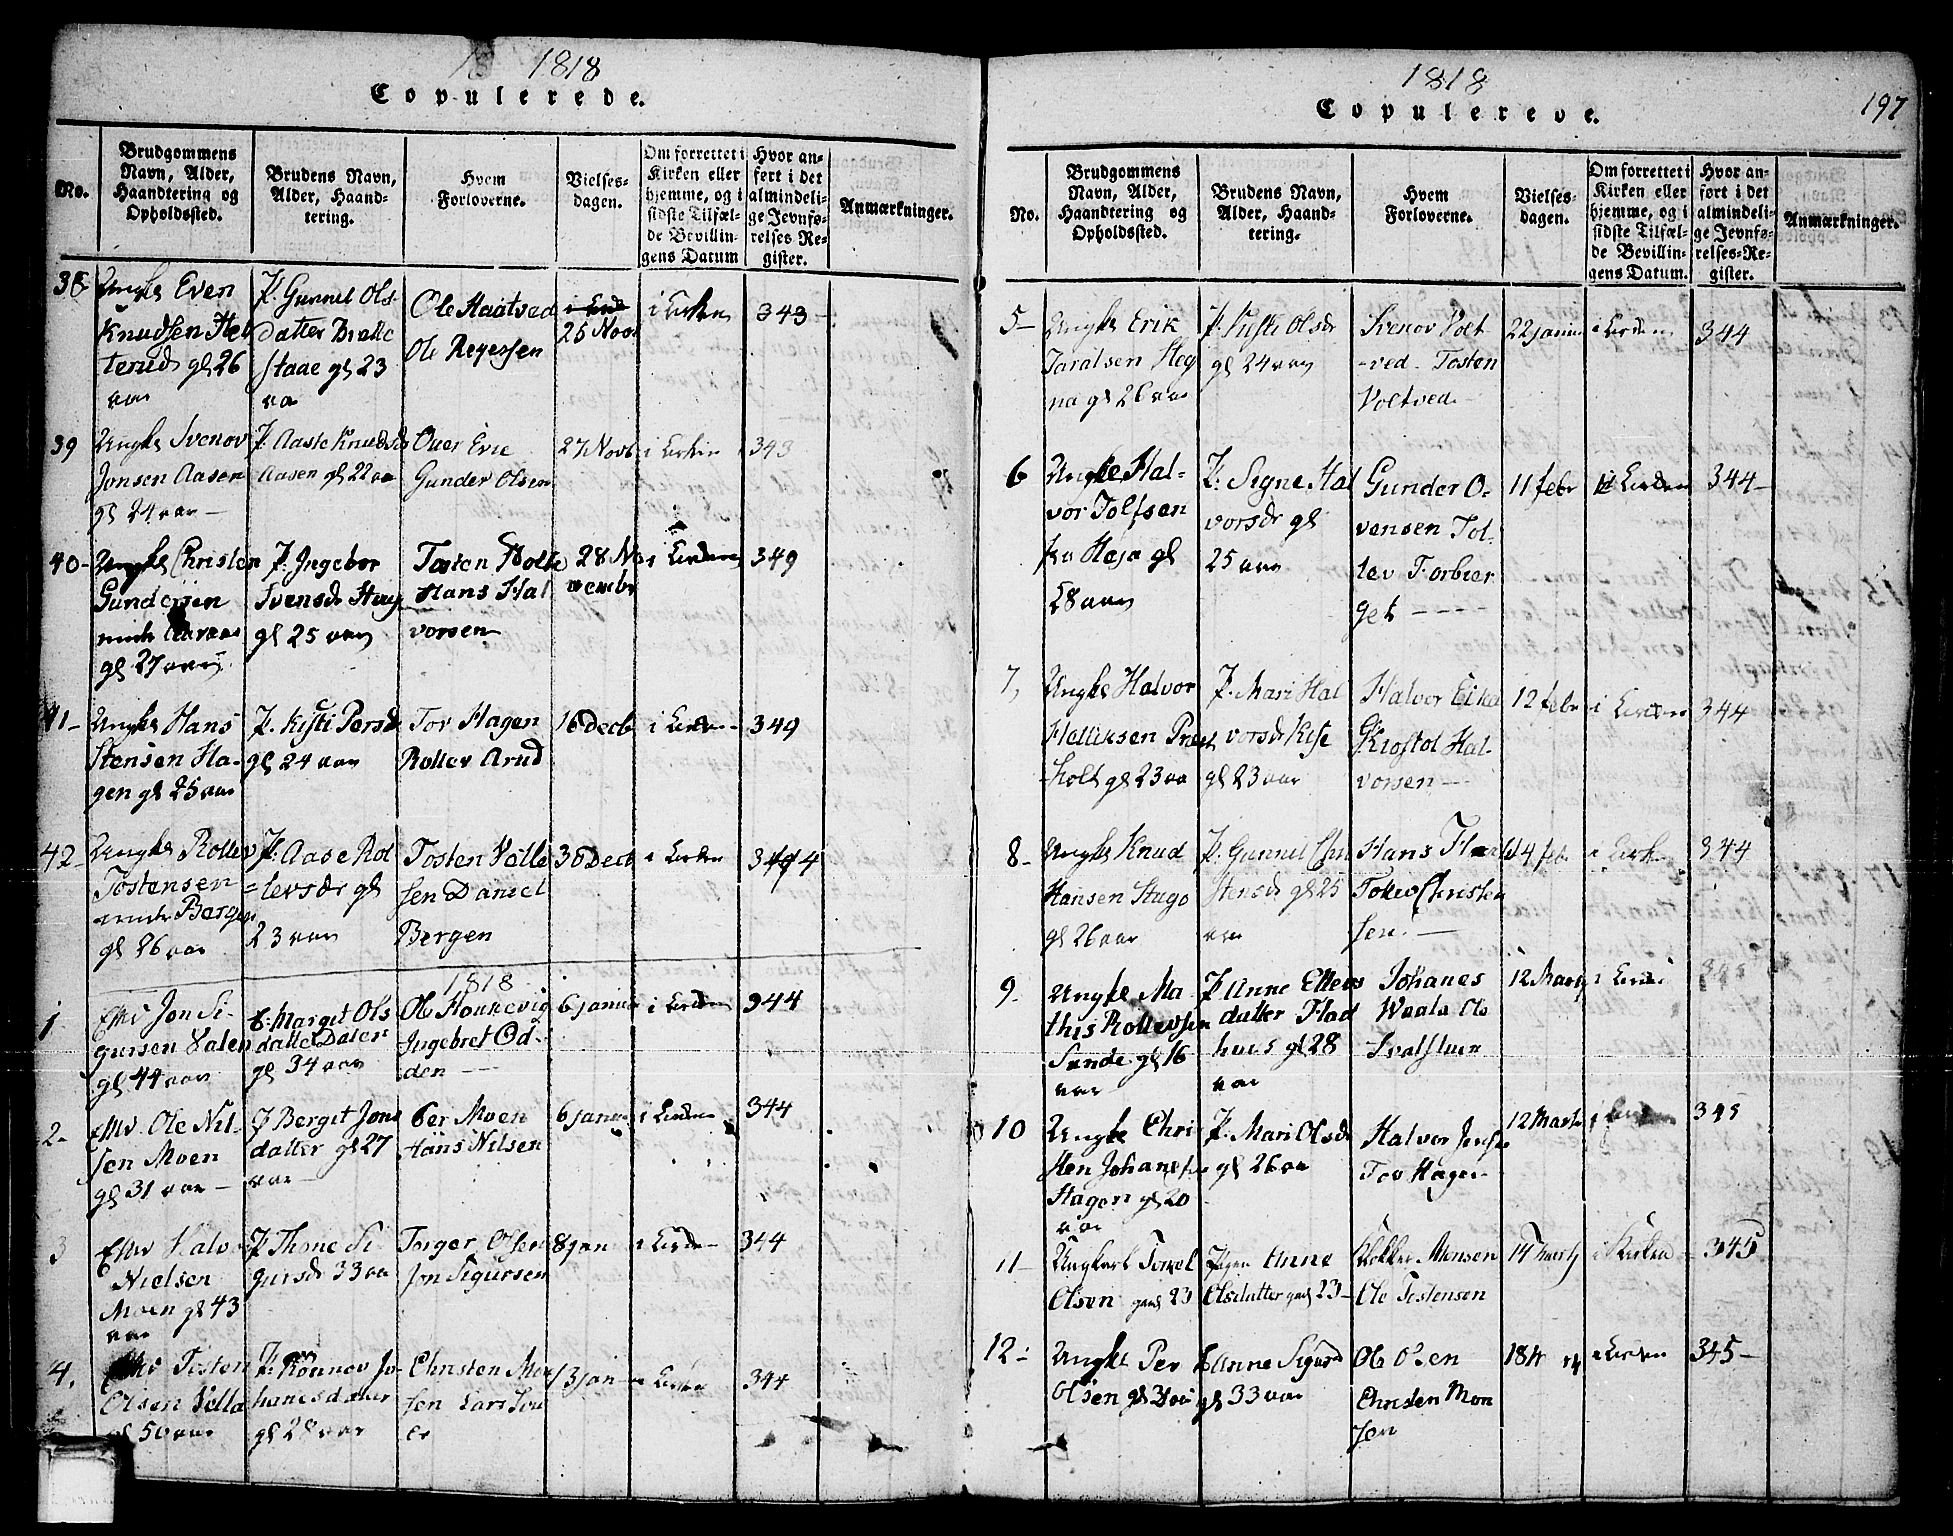 1818
Copulerede.
No.
Brudgommens Navn, Alder, Haandtering og Opholdssted.
Brudens Navn, Alder, Haandtering.
Hvem Forloverne.
Vielsesdagen.
Om forrettet i Kirken eller hjemme, og i sidste Tilfælde Bevillingens Datum
Hvor anført i det almindelige Jevnførelses-Register.
Anmærkninger.
38
Ungk Even
Knudsen Het
terud gl 26
aar
P. Gunnil Ols
datter Bratte
staae gl 23
aa
Ole Haatsad
Ole Regersen
25 Novb
i Kirken
343
39
Ungk Svenov
Jonsen Aasen
gl 24 aar
P. Aaste Knudsd
Aasen gl 22 aa
Over Evie
Gunder Olsen
27 Novb
i Kirken
343
40
Ungk Christen
Gundersen
gl 27 aar
P. Ingebor
Svensdr Haug
gl 25 aar
Tosten Holte
Hans Hal
vorsen
28 No
vembr
i Kirken
349
41
Ungk Hans
Stensen Ha-
gen gl 25 aar
P. Kisti Persdr
gl 24 aar
Tov Hagen
Rollev Arud
16 Decb
i Kirken
349
42
Ungk Rollev
Tostensen
Bergen
gl 26 aar
P. Aase Rol
levsdr gl
23 aar
Tosten Välle
sen Daniel
Bergen
30 Decb
i Kirken
344
1818
1
Emk Jon Si-
gursen Valen
gl 44 aar
E. Margit Ols
datter Daler
gl 34 aar
Ole Honnevig
Ingebret Od-
den
6 januar
i Kirken
344
2
Emk Ole Nil-
sen Moen
gl 31 aar
P Bergit Jons
datter gl 27
aar
Per Moen
Hans Nilsen
6 januar
i Kirken
344
3
Emk Halvo
Nielsen
Moen gl 43
aar
P Thone Si
gursdr 33 aa
Torger Olsen
Jon Sigursen
8 jan
i Kirken
344
4.
Tosten
Olsen Vella
gl 50 aar
P. Rönnov Jo-
hanesdatter
gl 28 aar
Christen Mon
sen Lars
13 jan
i Kirken
344
1818
197
Copulerede.
No.
Brudgommens Navn, Alder, Haandtering og Opholdssted.
Brudens Navn, Alder, Haandtering.
Hvem Forloverne.
Vielsesdagen.
Om forrettet i Kirken eller hjemme, og i sidste Tilfælde Bevillingens Datum.
Hvor anført i det almindelige Jevnførelses-Register.
Anmærkninger.
5
Ungk Erik
Taralsen Heg
na gl 26 aar
P. Kisti Olsdr
gl 24 aar
Svenov Volt
ved Tosten
Voltved
22 januar
i Kirken
344
6
Ungk Hal-
vor Tolfsen
fra Heja gl
28 aar
P. Signe Hal
vorsdr gl
25 aar
Gunder O-
vensen Tol-
lev Torbier
get
11 febr
i Kirken
344
7
Ungk Halvor
Helliksen Præst
holt gl 23 aa
P. Mari Hal
vorsdr Kise
gl 23 aar
Halvor Eika
Krostol Hal-
vorsen
12 febr
i Kirken
344
8
Ungk Knud
Hansen Hago
gl 26 aar
P. Gunnil Chri
stensdr gl 25
aar
Hans
Tollev Christen
sen
14 febr
i Kirken
344
9
Ungk Ma
this Rollevsen
Sunde gl 16
aar
P Anne Ellevs
datter Flad
huus gl 28
aar
Johanes
Waala Ole
12 Marty
i Kirken
345
10
Ungk Chri
sten Johanes
Hagen gl 20
aar
P. Mari Olsdr
gl 26 aa
Halvor Jensen
Tov Hagen
12 Marts
i Kirken
345
11
Ungkarl Torkel
Olsen gaml 23
Pigen Anne
Olsdatter gaml 23
Klokker Monsen
Ole Tostensen
14 Marty
i Kirken
345
12
Ungk Per
Olsen gl
E Anne Sigurd
gl 33 aar
Ole Olsen
Christen Mon
sen
18
i Kirken
345